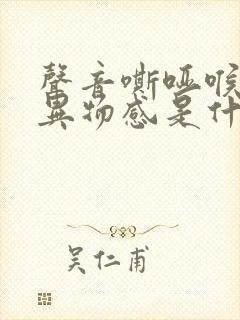 聲音嘶啞喉
異物感是什
吴仁甫